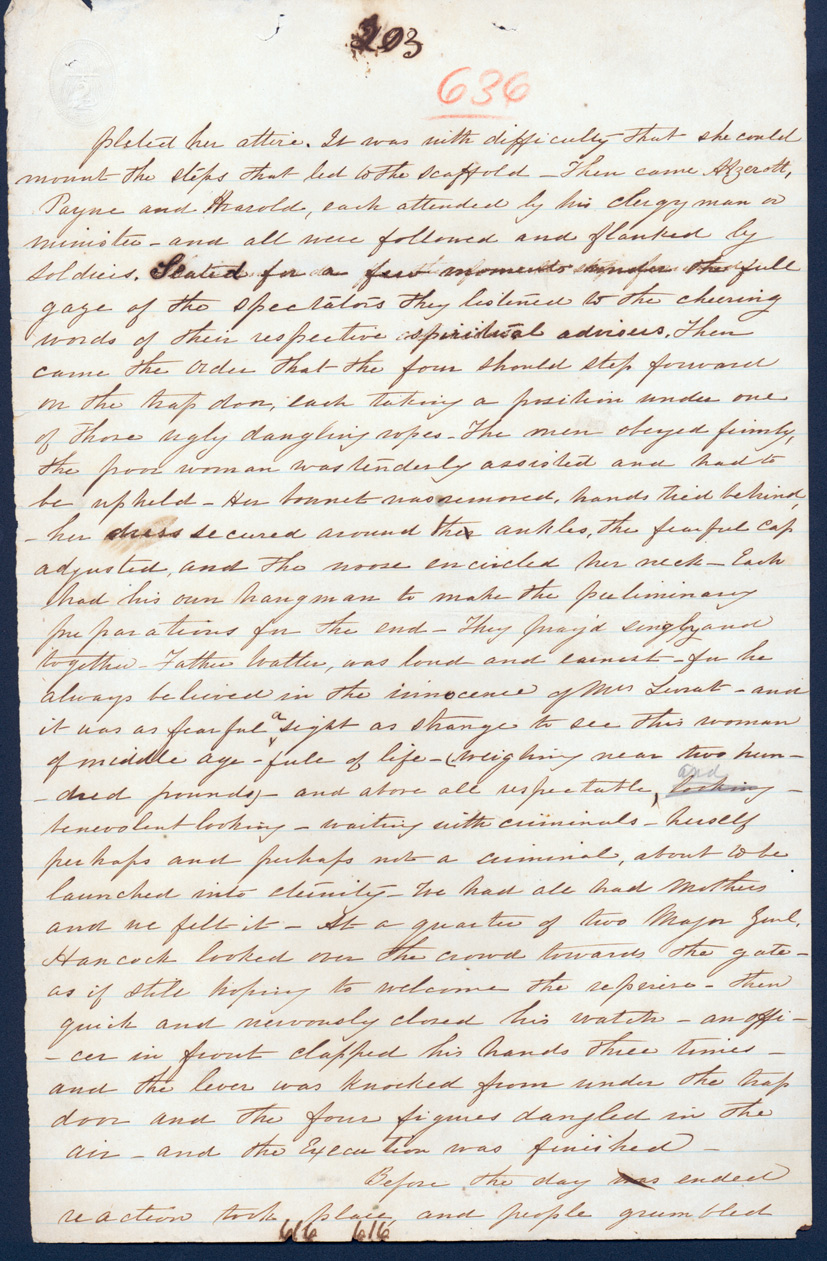 293
636
pleted her attire. It was with difficulty that she could
mount the steps that led to the scaffold - Then came Atzerott,
Payne and Harold, each attended by his clergyman or
minister - and all were followed and flanked by
soldiers. Seated for a few moments under the full
gaze of the spectators they listened to the cheering
words of their respective spiritual advisers. Then
came the order that the four should step forward
on the trap door, each taking a position under one
of those ugly dangling ropes - The men obeyed firmly,
the poor woman was tenderly assisted and had to
be upheld - Her bonnet was removed, hands tied behind,
- her dress secured around the ankles, the fearful cap
adjusted, and the noose encircled her neck - Each
had his own hangman to make the preliminary
preparations for the end - They pray'd singly and
together - Father Walter, was loud and earnest - for he
always believed in the innocence of Mrs Surat - and
it was as fearful a sight as strange to see this woman
of middle age - full of life - (weighing near two hun-
- dred pounds) - and above all respectable, and looking -
benevolent looking - waiting with criminals - herself
perhaps and perhaps not a criminal, about to be
launched into eternity - We had all had Mothers
and we felt it - At a quarter of two Major Genl.
Hancock looked over the crowd towards the gate -
as if still hoping to welcome the reprieve - then
quick and nervously closed his watch - an offi-
- cer in front clapped his hands three times -
and the lever was knocked from under the trap
door and the four figures dangled in the
air - and the Execution was finished -
Before the day was ended
reaction took place, and people grumbled
616 616